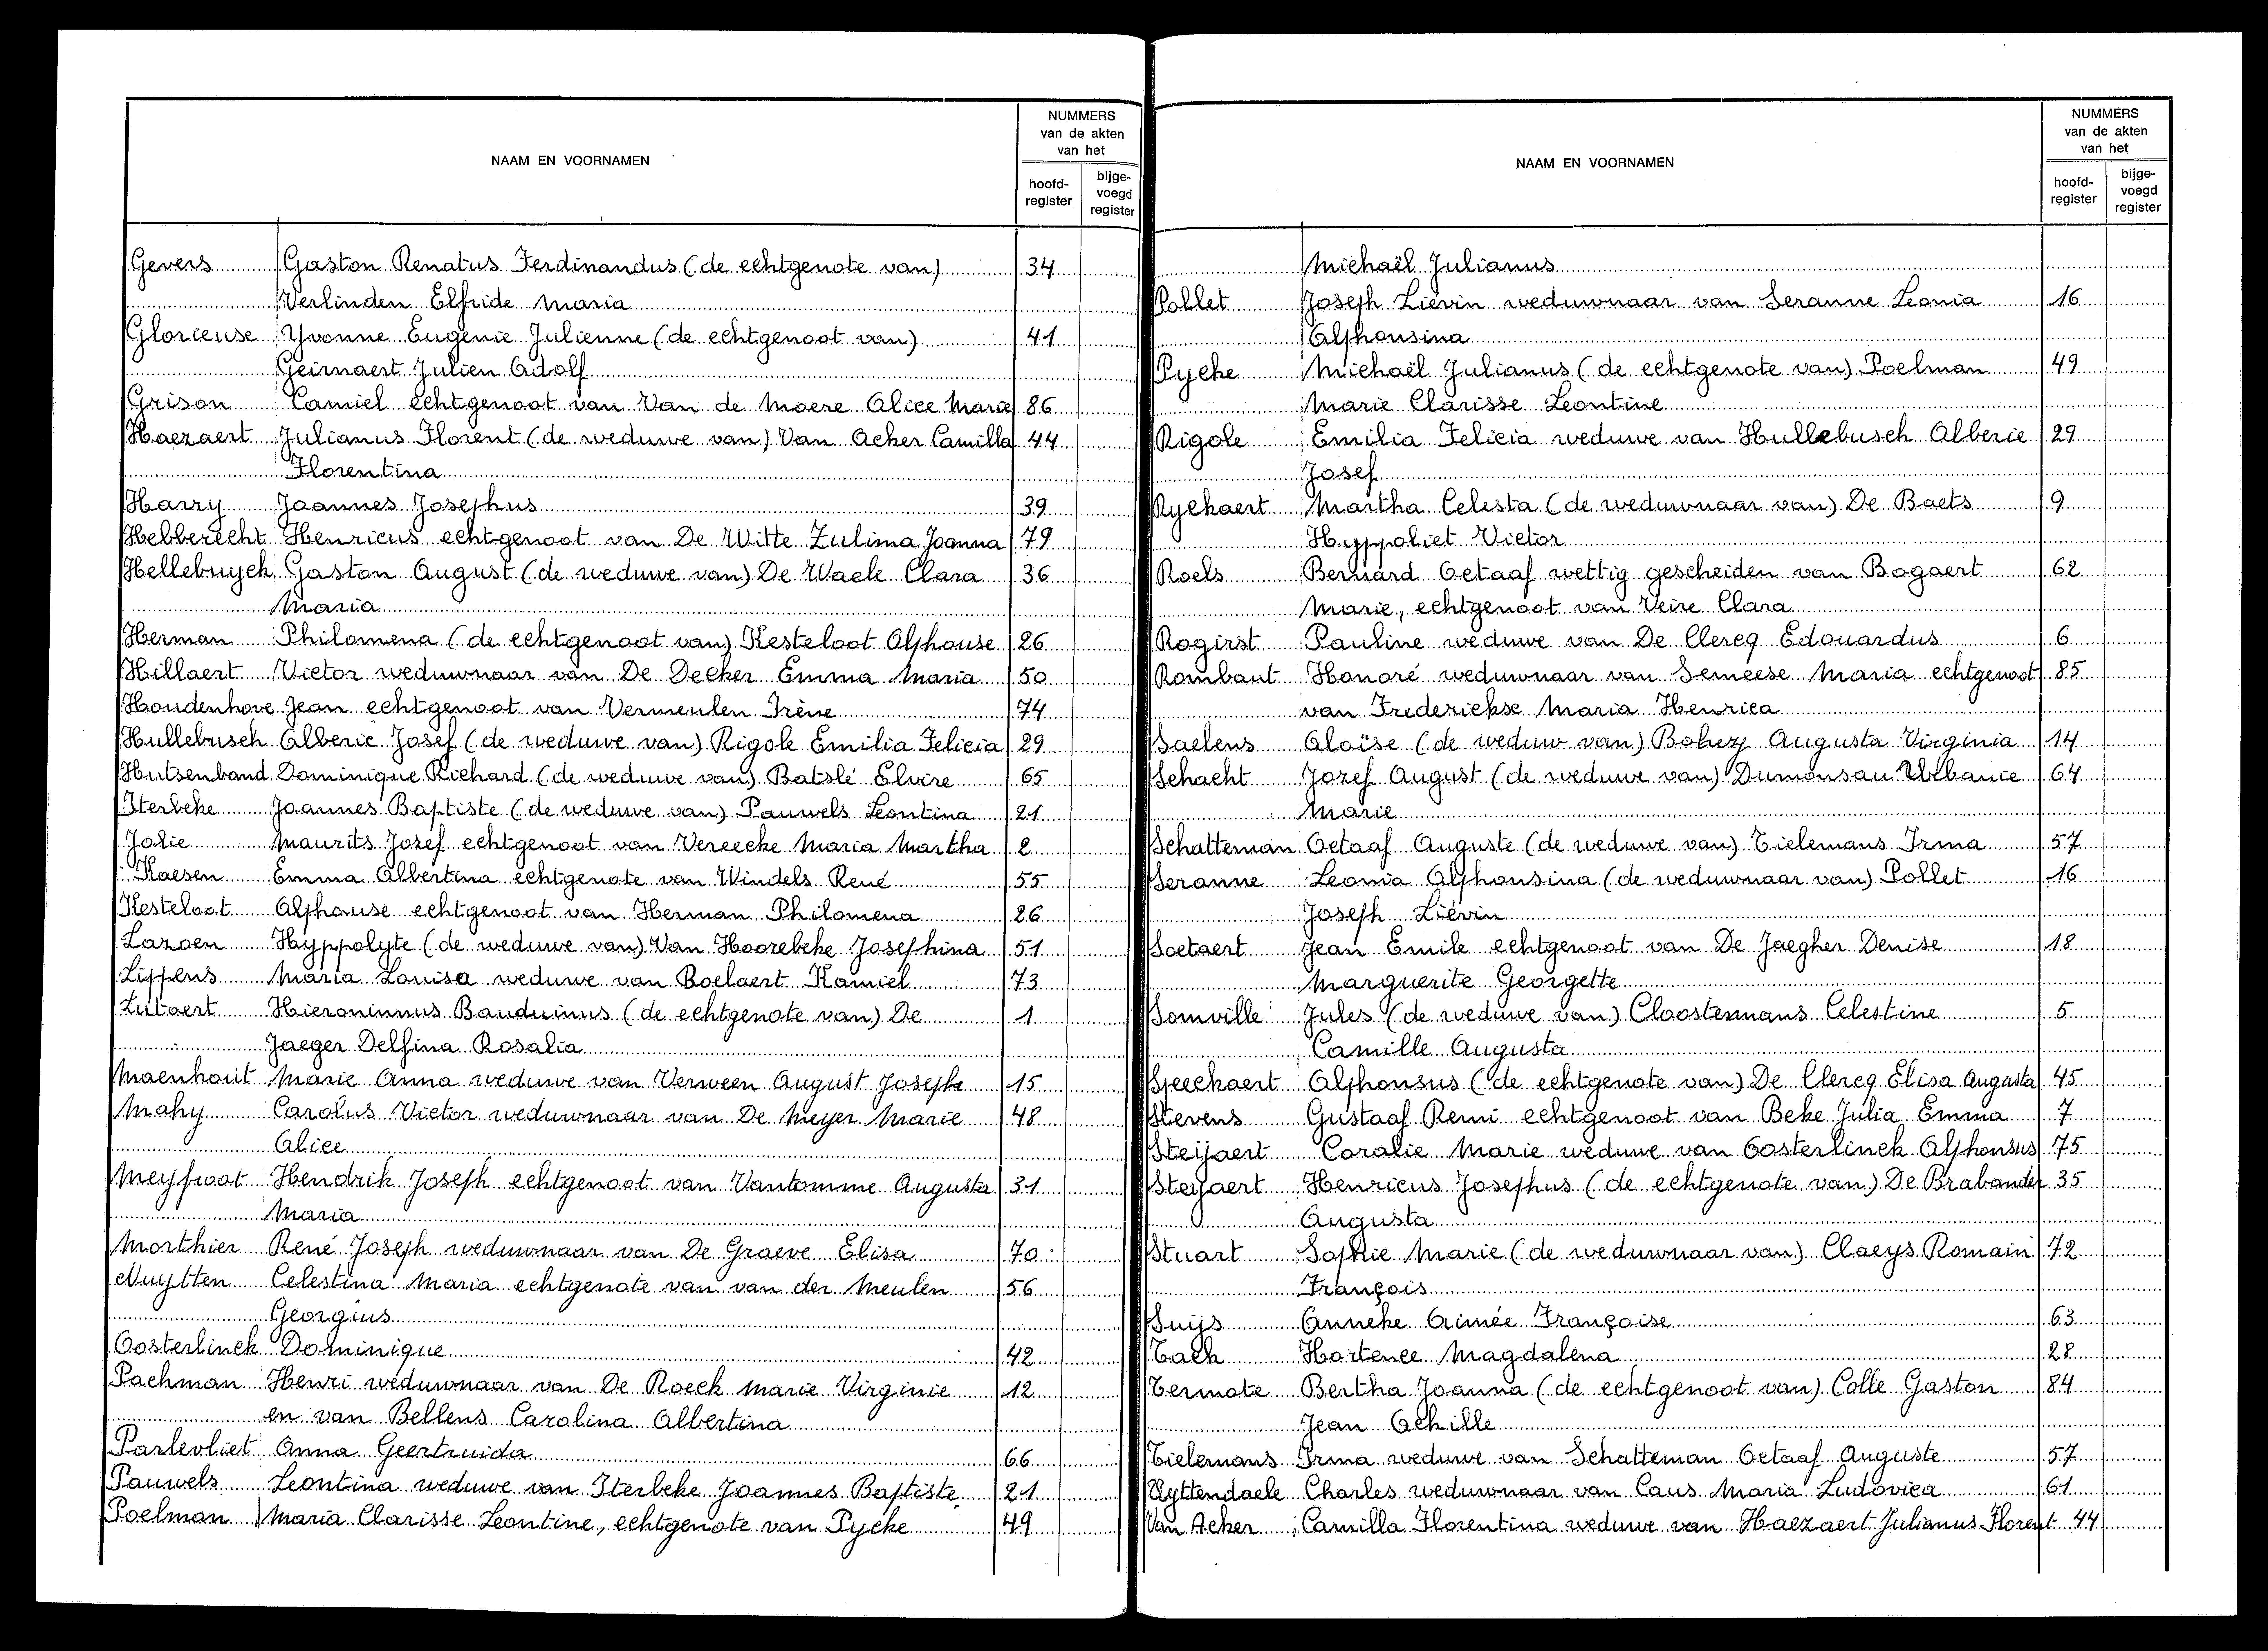 NAAM EN VOORNAMEN
NUMMERS
van de akten
van het
hoofd-
register
bijge-
voegd
register
Gevers Gaston Renatus Ferdinandus (de echtgenote van) 34
Verlinden Elfride Maria
Glorieuse Yvonne Eugenie Julienne (de echtgenoot van) 41
Geirnaert Julien Adolf
Grison Camiel echtgenoot van Van de Moere Alice Marie 86
Haezaert Julianus Florent (de weduwe van) Van Acker Camilla 44
Florentina
Harry Joannes Josephus 39
Hebberecht Henricus echtgenoot van De Witte Zulima Joanna 79
Hellebuyck Gaston August (de weduwe van) De Waele Clara 36
Maria
Herman Philomena (de echtgenoot van) Kesteloot Alphonse 26
Hillaert Victor weduwnaar van De Decker Emma Maria 50
Houdenhove Jean echtgenoot van Vermeulen Irène 74
Hullebusch Alberic Josef (de weduwe van) Rigole Emilia Felicia 29
Hutsenband Dominique Richard (de weduwe van) Batslé Elvire 65
Iterbeke Joannes Baptiste (de weduwe van) Pauwels Leontina 21
Jolie Maurits Jozef echtgenoot van Vereecke Maria Martha 2
Kaesen Emma Albertina echtgenote van Windels René 55
Kesteloot Alphonse echtgenoot van Herman Philomena 26
Lazoen Hyppolyte (de weduwe van) Van Hoorebeke Josephina 51
Lippens Maria Louisa weduwe van Roelaert Kamiel 73
Lutaert Hieronimus Bauduinus (de echtgenote van) De 1
Jaeger Delfina Rosalia
Maenhout Marie Anna weduwe van Verween August Josephe 15
Mahy Carolus Victor weduwnaar van De Meyer Marie 48
Alice
Meyfroot Hendrik Joseph echtgenoot van Vantomme Augusta 31
Maria
Morthier René Joseph weduwnaar van De Graeve Elisa 70
Nuytten Celestina Maria echtgenote van van der Meulen 56
Georgius
Oosterlinck Dominique 42
Pachman Henri weduwnaar van De Roeck Marie Virginie 12
en van Bellens Carolina Albertina
Parlevliet Anna Geertruida 66
Pauwels Leontina weduwe van Iterbeke Joannes Baptiste 21
Poelman Maria Clarisse Leontine, echtgenote van Pycke 49
NAAM EN VOORNAMEN
NUMMERS
van de akten
van het
hoofd-
register
bijge-
voegd
register
Michaël Julianus
Pollet Joseph Liévin weduwnaar van Seranne Leonia 16
Alphonsina
Pycke Michaël Julianus (de echtgenote van) Poelman 49
Marie Clarisse Leontine
Rigole Emilia Felicia weduwe van Hullebusch Alberic 29
Josef
Ryckaert Martha Celesta (de weduwnaar van) De Baets 9
Hyppoliet Victor
Roels Bernard Octaaf wettig gescheiden van Bogaert 62
Marie, echtgenoot van Veire Clara
Rogirst Pauline weduwe van De Clercq Edouardus 6
Rombaut Honoré weduwnaar van Semeese Maria echtgenoot 85
van Frederickse Maria Henrica
Saelens Aloïse (de weduw van) Bohez Augusta Virginia 14
Schacht Jozef August (de weduwe van) Dumonsau Urbanie 64
Marie
Schatteman Octaaf Auguste (de weduwe van) Tielemans Irma 57
Seranne Leonia Alphonsina (de weduwnaar van) Pollet 16
Joseph Liévin
Soetaert Jean Emile echtgenoot van De Jaegher Denise 18
Marguerite Georgette
Somville Jules (de weduwe van) Cloostermans Celestine 5
Camille Augusta
Speeckaert Alphonsus (de echtgenote van) De Clercq Elisa Augusta 45
Stevens Gustaaf Remi echtgenoot van Beke Julia Emma 7
Steijaert Coralie Marie weduwe van Oosterlinck Alphonsus 75
Steijaert Henricus Josephus (de echtgenote van) De Brabander 35
Augusta
Stuart Sophie Marie (de weduwnaar van) Claeys Romain 72
François
Suijs Anneke Aimée Françoise 63
Tack Hortence Magdalena 28
Termote Bertha Joanna (de echtgenoot van) Colle Gaston 84
Jean Achille
Tielemans Irma weduwe van Schatteman Octaaf Auguste 57
Uyttendaele Charles weduwnaar van Caus Maria Ludovica 61
Van Acker Camilla Florentina weduwe van Haezaert Julianus Florent 44